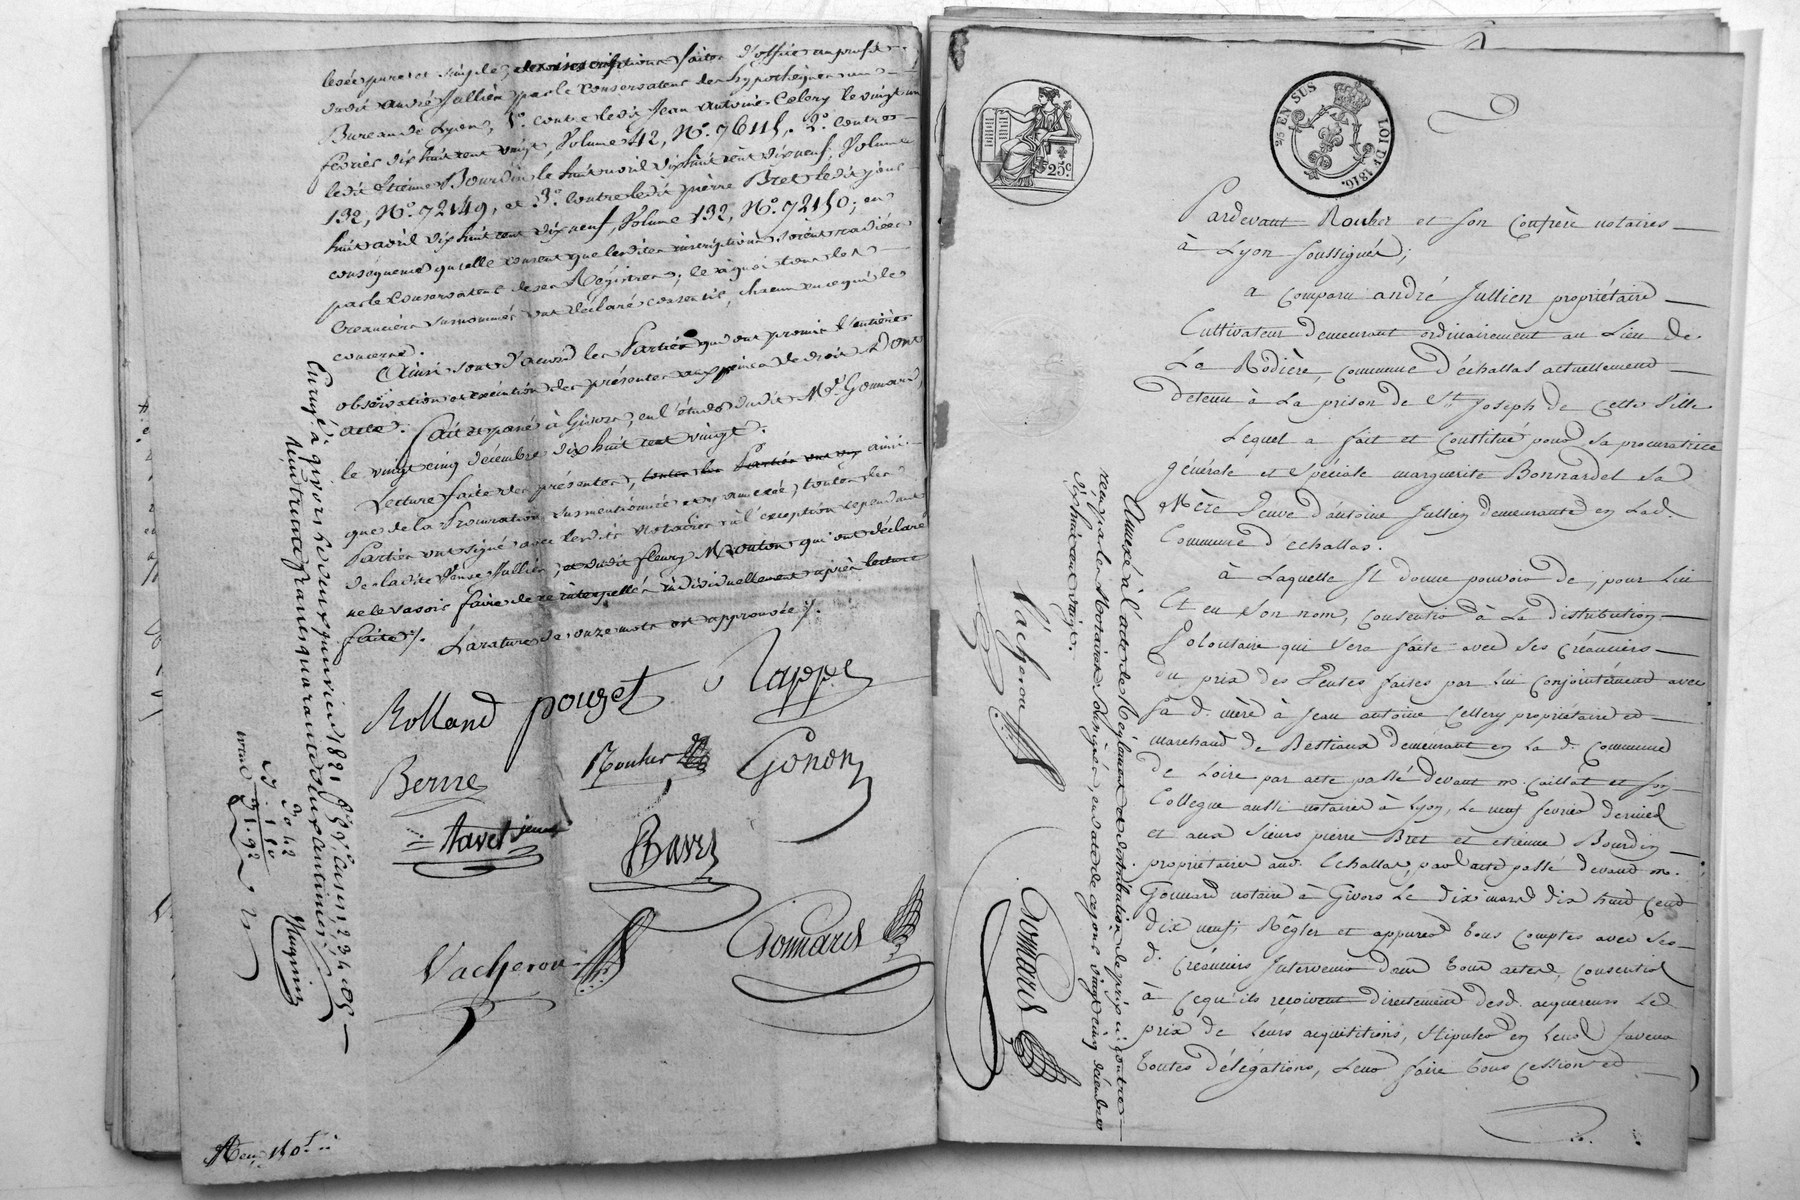 lesées pures et simples, des inscriptions faites d'office au profit
dudit André Jullien par le conservateur des hypothèques au
Bureau de Lyon, 1º. contre ledit Jean Antoine Celery le vingt un
février dix huit cent vingt, Volume 142, Nº. 76115, 2º. contre
ledit Etienne Bourdin le huit avril dix huit cent dix neuf, Volume
132, Nº. 72149, et 3º. contre ledit pierre Bret ledit jour
huit avril dix huit cent dix neuf, Volume 132, Nº. 72150; en
conséquence qu'elle consent que lesdites inscriptions soient radiées
par le conservateur de ses Registres; ce à quoi tous les
Creanciers surnommés ont déclaré consentir, chacun en ce qui le
concerne.
Ainsi sont d'accord les Parties qui ont promis l'entière
observation et exécution des présentes aux peines de droit. Dont
acte. Fait et passé à Givors, en l'étude dudit Me. Gonnard,
le vingt cinq décembre dix huit cent vingt.
Lecture faite des présentes, toutes les Parties ont ainsi
que de la Procuration susmentionnée et y annexée, toutes les
Parties ont signé avec lesdits notaires à l'exception cependant
de ladite Veuve Jullien, et dudit fleury Mouton qui ont déclaré
ne le savoir faire de ce interpellés individuellement après lecture
faite ./. La rature de onze mots est approuvée ./.
Rolland pouzet Rappe
Berne Rouher Gonon
Favel jeune
Vacheron Gonnard
Enregé. à givors le deux janvier 1821
Reçu trente francs quarante deux centimes
30.42
91.92
Pardevant Rouher et son Confrère notaires
à Lyon soussignés;
a comparu andré Jullien propriétaire
Cultivateur demeurant ordinairement au Lieu de
La Rodière, commune d'échallas actuellement
Detenu à La prison de St. Joseph de Cette Ville
Lequel a fait et Constitué pour sa procuratrice
générale et Spéciale marguerite Bonnardel sa
Mère Veuve d'antoine Jullien demeurante en Lad.
Commune d'échallas.
à Laquelle Il donne pouvoir de, pour Lui
Et en son nom, Consentir à La distribution
Volontaire qui sera faite avec ses Créanciers
du prix des Ventes faites par Lui Conjointement avec
sa d. mère à Jean antoine Cellery propriétaire et
marchand de Bestiaux demeurant en La d. Commune
de Loire par acte passé devant m. Caillat et son
Collegue aussi notaires à Lyon, Le neuf fevrier dernier
et aux sieurs pierre Bret et etienne Bourdin
propriétaires aud. Echallas, par acte passé devant m.
Gonnard notaire à Givors Le dix mars dix huit Cent
dix neuf; Régler et appurer tous Comptes avec ses
d. Créanciers Intervenir dans tous actes, Consentir
à Cequ'ils reçoivent directement desd. acquereurs Le
prix de Leurs acquisitions, stipuler en Leur faveur
toutes délégations, Leur faire tous Cessions et
Annexé à l'acte de Règlement et distribution de prix ci-contre
reçu par les Notaires soussignés, en date de ce jour vingt cinq décembre
dix huit cent vingt.
Vacheron
Gonnard
25c.
2/5 EN SUS
LOI DE 1816.